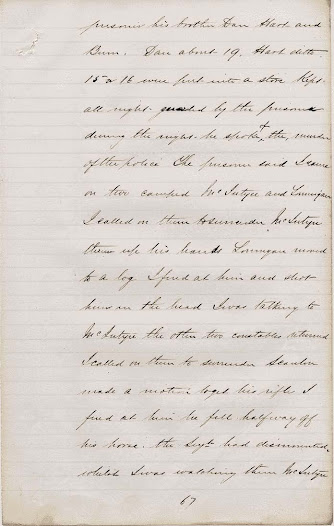 prisoner his brother Dan Hart and
Burn. Dan about 19. Hart ditto.
15 or 16 were put into a store kept
all night guarded by the prisoner
during the night he spoke of the murder
of the police The prisoner said I came
on two camped McIntyre and Lonigan
I called on them to surrender McIntyre
threw up his hands Lonigan moved
to a log I fired at him and shot
him in the head I was talking to
McIntyre the other two constables returned
I called on them to surrender Scanlon
made a motion to get his rifle I
fired at him he fell halfway off
his horse. the Sgt had dismounted,
whilst I was watching them McIntyre
67